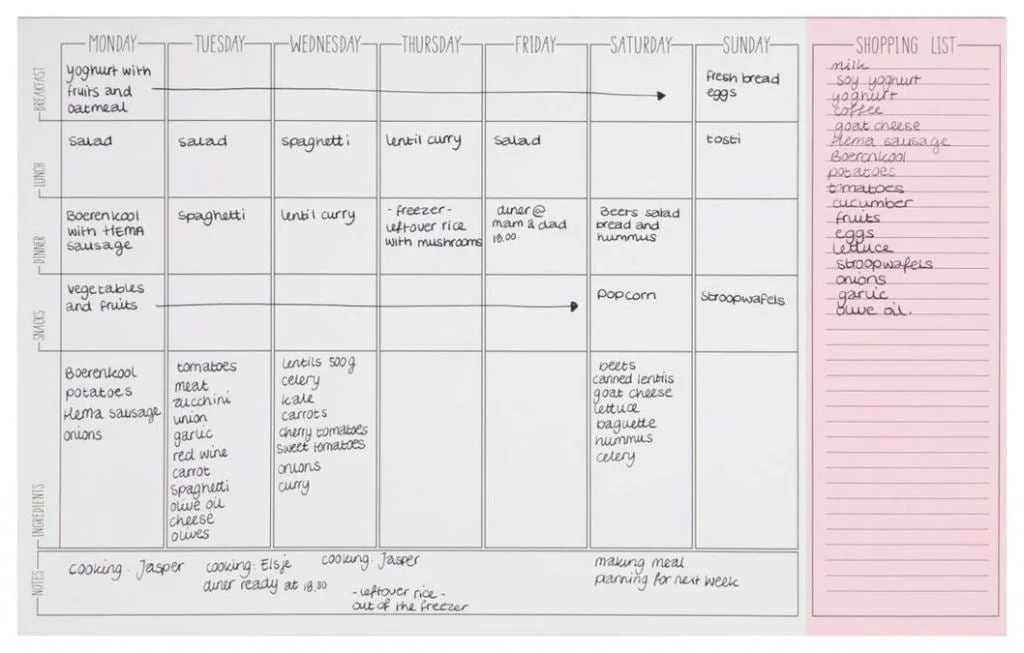 MONDAY
TUESDAY
WEDNESDAY
THURSDAY
FRIDAY
SATURDAY
SUNDAY
BREAKFAST
yoghurt with
fruits and
oatmeal
fresh bread
eggs
LUNCH
salad
salad
spaghetti
lentil curry
salad
tosti
DINNER
Boerenkool
with HEMA
sausage
spaghetti
lentil curry
- freezer -
leftover rice
with mushrooms
diner @
mam & dad
18.00
Beets salad
bread and
hummus
SNACKS
vegetables
and fruits
popcorn
stroopwafels
INGREDIENTS
Boerenkool
potatoes
Hema sausage
onions
tomatoes
meat
zucchini
union
garlic
red wine
carrot
spaghetti
olive oil
cheese
olives
lentils 500g
celery
kale
carrots
cherry tomatoes
sweet tomatoes
onions
curry
beets
canned lentils
goat cheese
lettuce
baguette
hummus
celery
NOTES
cooking: Jasper
cooking: Elsje
diner ready at 18.30
cooking: Jasper
- leftover rice -
out of the freezer
making meal
planning for next week
SHOPPING LIST
milk
soy yoghurt
yoghurt
coffee
goat cheese
Hema sausage
Boerenkool
potatoes
tomatoes
cucumber
fruits
eggs
lettuce
stroopwafels
onions
garlic
olive oil.